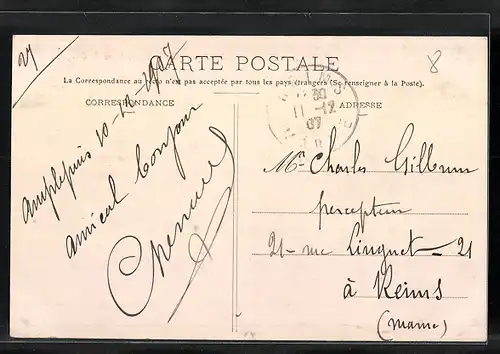 27
CARTE POSTALE
8
La Correspondance au recto n'est pas acceptée par tous les pays étrangers (Se renseigner à la Poste).
CORRESPONDANCE
ADRESSE
Amplepuis 10-12-1907
amical bonjour
REIMS
30
11-12
07
Mr Charles
percepteur
21- rue Linguet - 21
à Reims
(Marne)